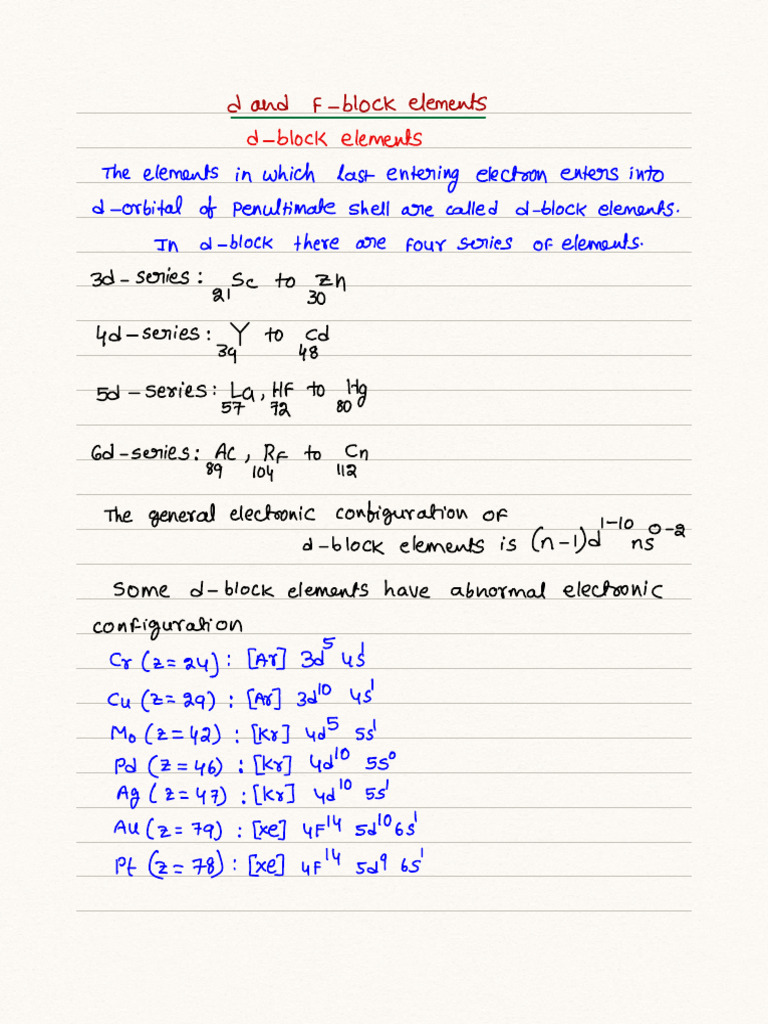 d and F-block elements
d-block elements
The elements in which last entering electron enters into
d-orbital of Penultimate shell are called d-block elements.
In d-block there are four series of elements.
3d-series: ₂₁Sc to ₃₀Zn
4d-series: ₃₉Y to ₄₈Cd
5d-series: ₅₇La, ₇₂HF to ₈₀Hg
6d-series: ₈₉Ac, ₁₀₄RF to ₁₁₂Cn
The general electronic configuration of
d-block elements is (n-1)d¹⁻¹⁰ ns⁰⁻²
Some d-block elements have abnormal electronic
configuration
Cr (z=24): [Ar] 3d⁵ 4s¹
Cu (z=29): [Ar] 3d¹⁰ 4s¹
Mo (z=42): [Kr] 4d⁵ 5s¹
Pd (z=46): [Kr] 4d¹⁰ 5s⁰
Ag (z=47): [Kr] 4d¹⁰ 5s¹
Au (z=79): [xe] 4F¹⁴ 5d¹⁰ 6s¹
Pt (z=78): [xe] 4F¹⁴ 5d⁹ 6s¹